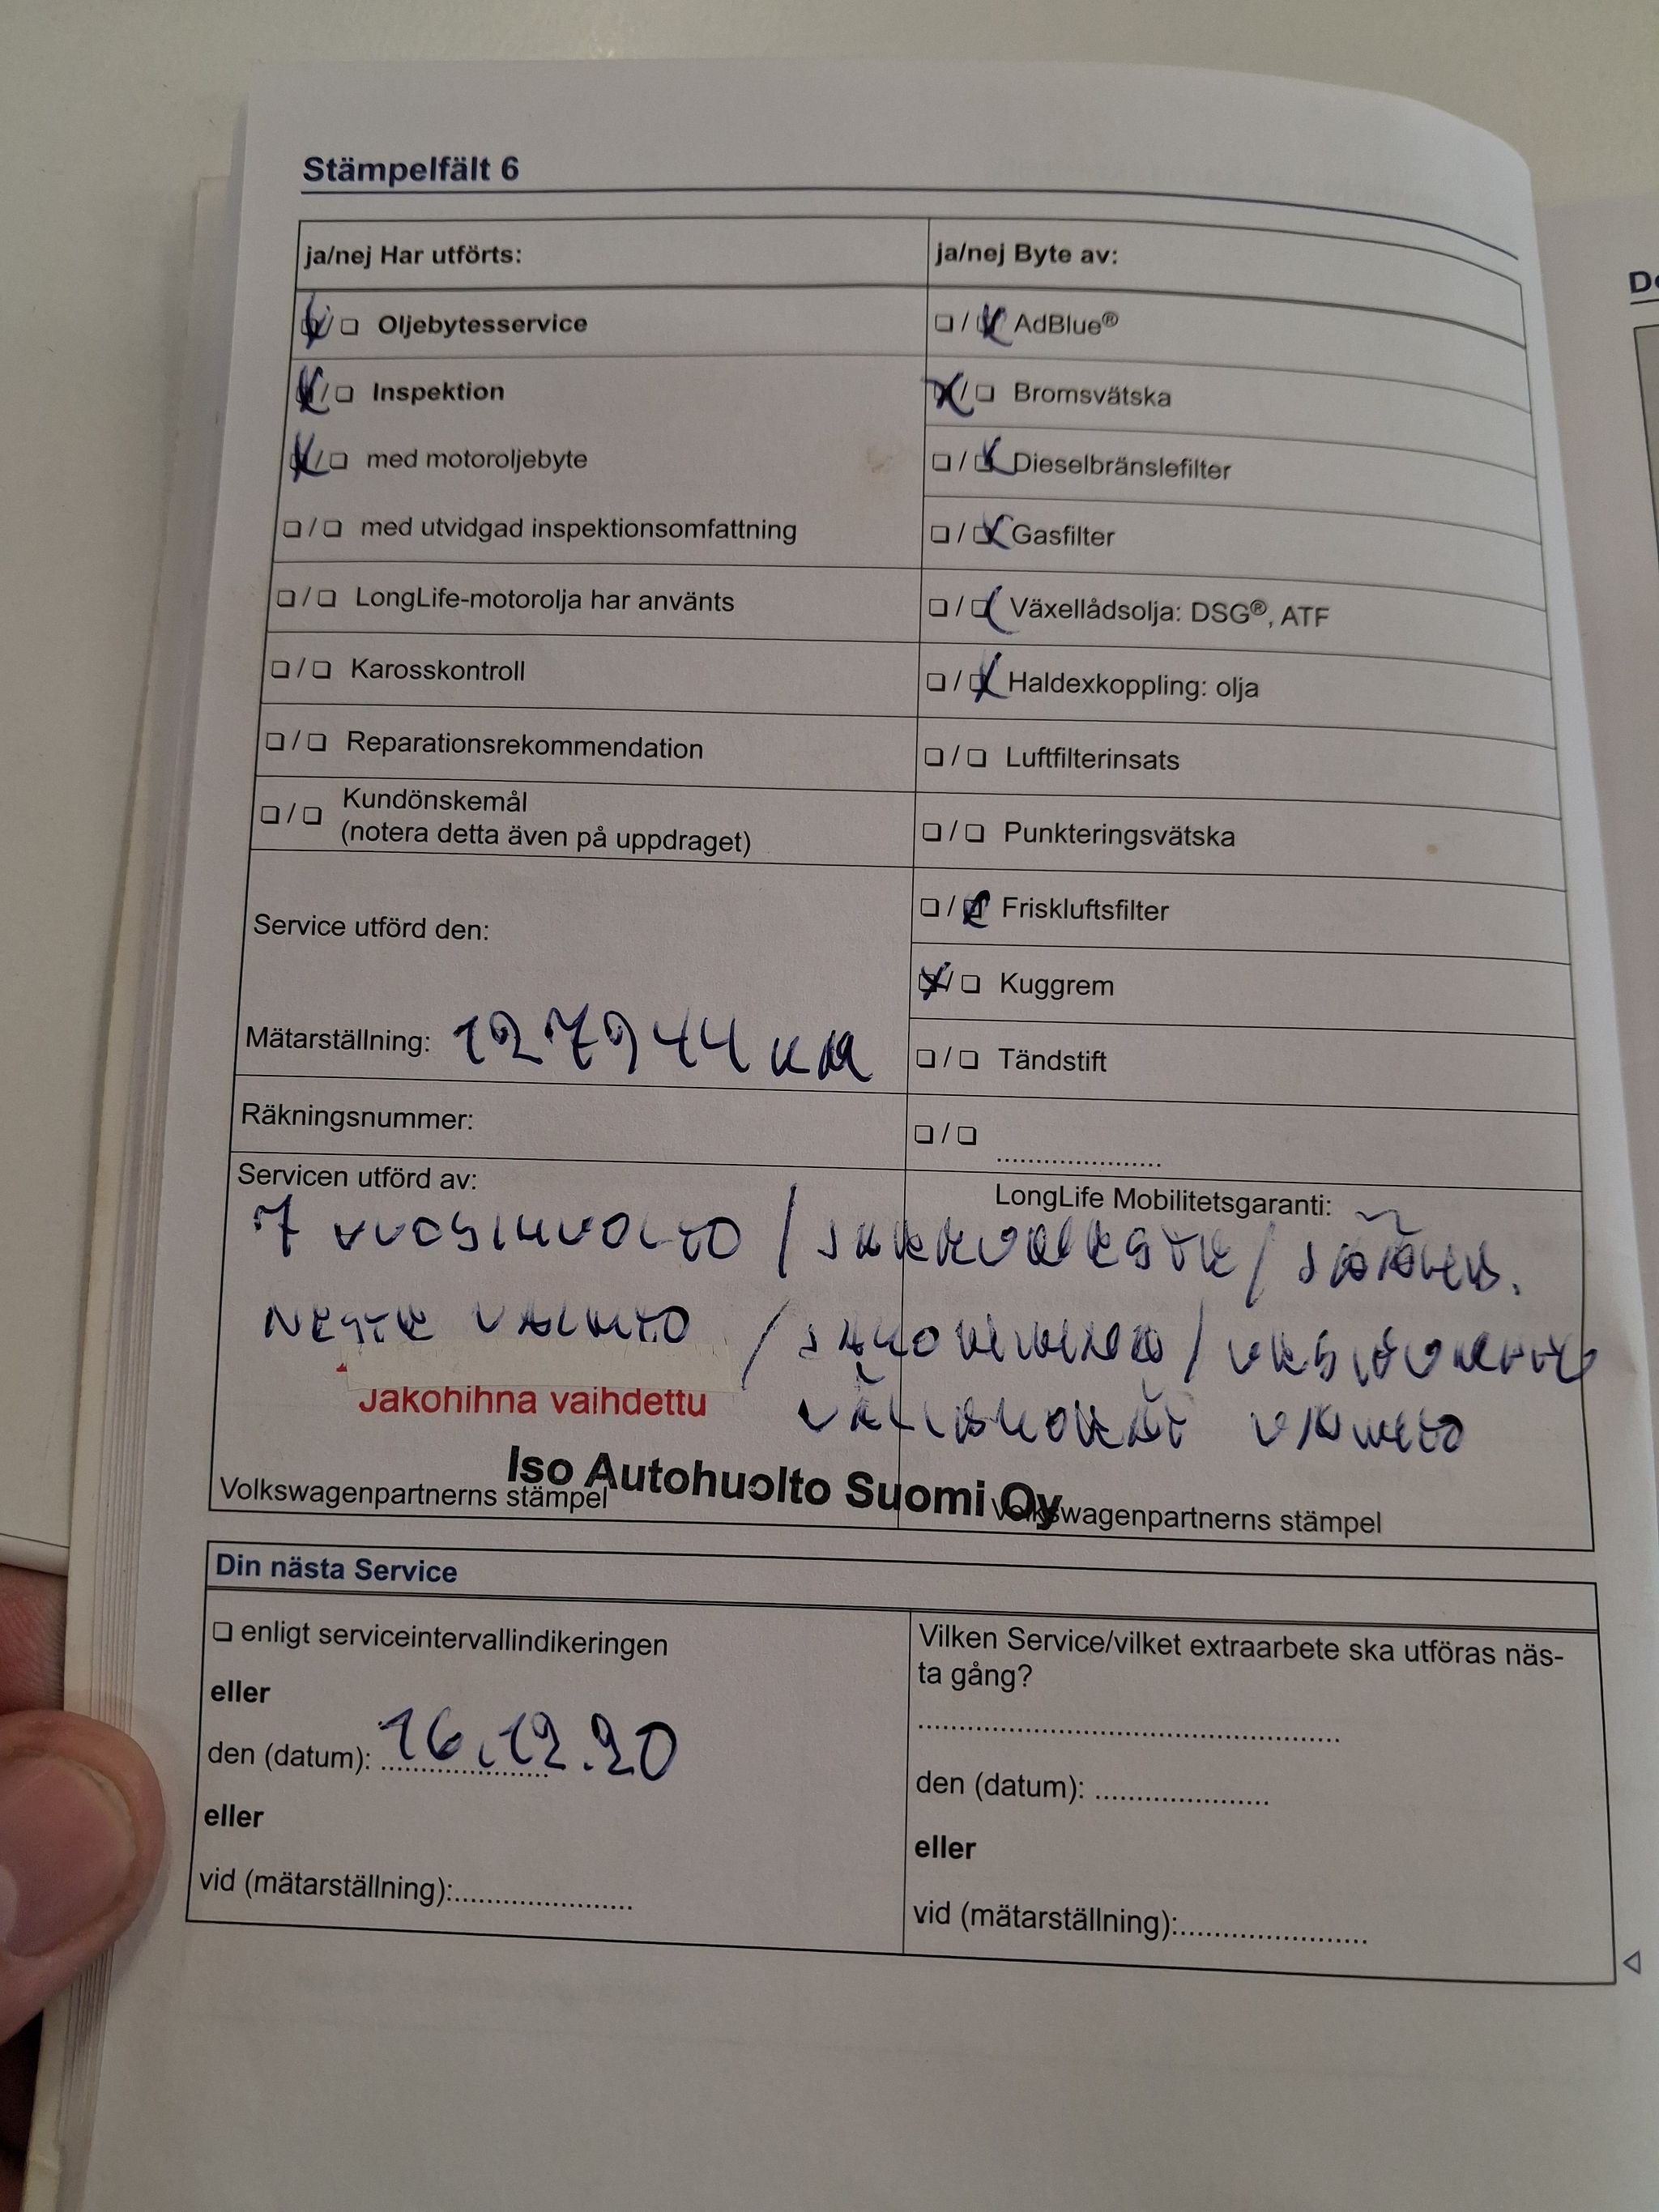 Stämpelfält 6
ja/nej Har utförts:
❏ / ❏ Oljebytesservice
❏ / ❏ Inspektion
❏ / ❏ med motoroljebyte
❏ / ❏ med utvidgad inspektionsomfattning
❏ / ❏ LongLife-motorolja har använts
❏ / ❏ Karosskontroll
❏ / ❏ Reparationsrekommendation
❏ / ❏ Kundönskemål
(notera detta även på uppdraget)
Service utförd den:
Mätarställning: 127944 km
Räkningsnummer:
Servicen utförd av:
ja/nej Byte av:
❏ / ❏ AdBlue®
❏ / ❏ Bromsvätska
❏ / ❏ Dieselbränslefilter
❏ / ❏ Gasfilter
❏ / ❏ Växellådsolja: DSG®, ATF
❏ / ❏ Haldexkoppling: olja
❏ / ❏ Luftfilterinsats
❏ / ❏ Punkteringsvätska
❏ / ❏ Friskluftsfilter
❏ / ❏ Kuggrem
❏ / ❏ Tändstift
❏ / ❏ ......................
LongLife Mobilitetsgaranti:
7 vuosihuolto / jarruneste / jäähd.
neste vaihto /
Jakohihna vaihdettu
Iso Autohuolto Suomi Oy
Volkswagenpartnerns stämpel
Volkswagenpartnerns stämpel
Din nästa Service
❏ enligt serviceintervallindikeringen
eller
den (datum): 16.12.20
eller
vid (mätarställning):........................
Vilken Service/vilket extraarbete ska utföras näs-
ta gång?
den (datum): .......................
eller
vid (mätarställning):.........................
De